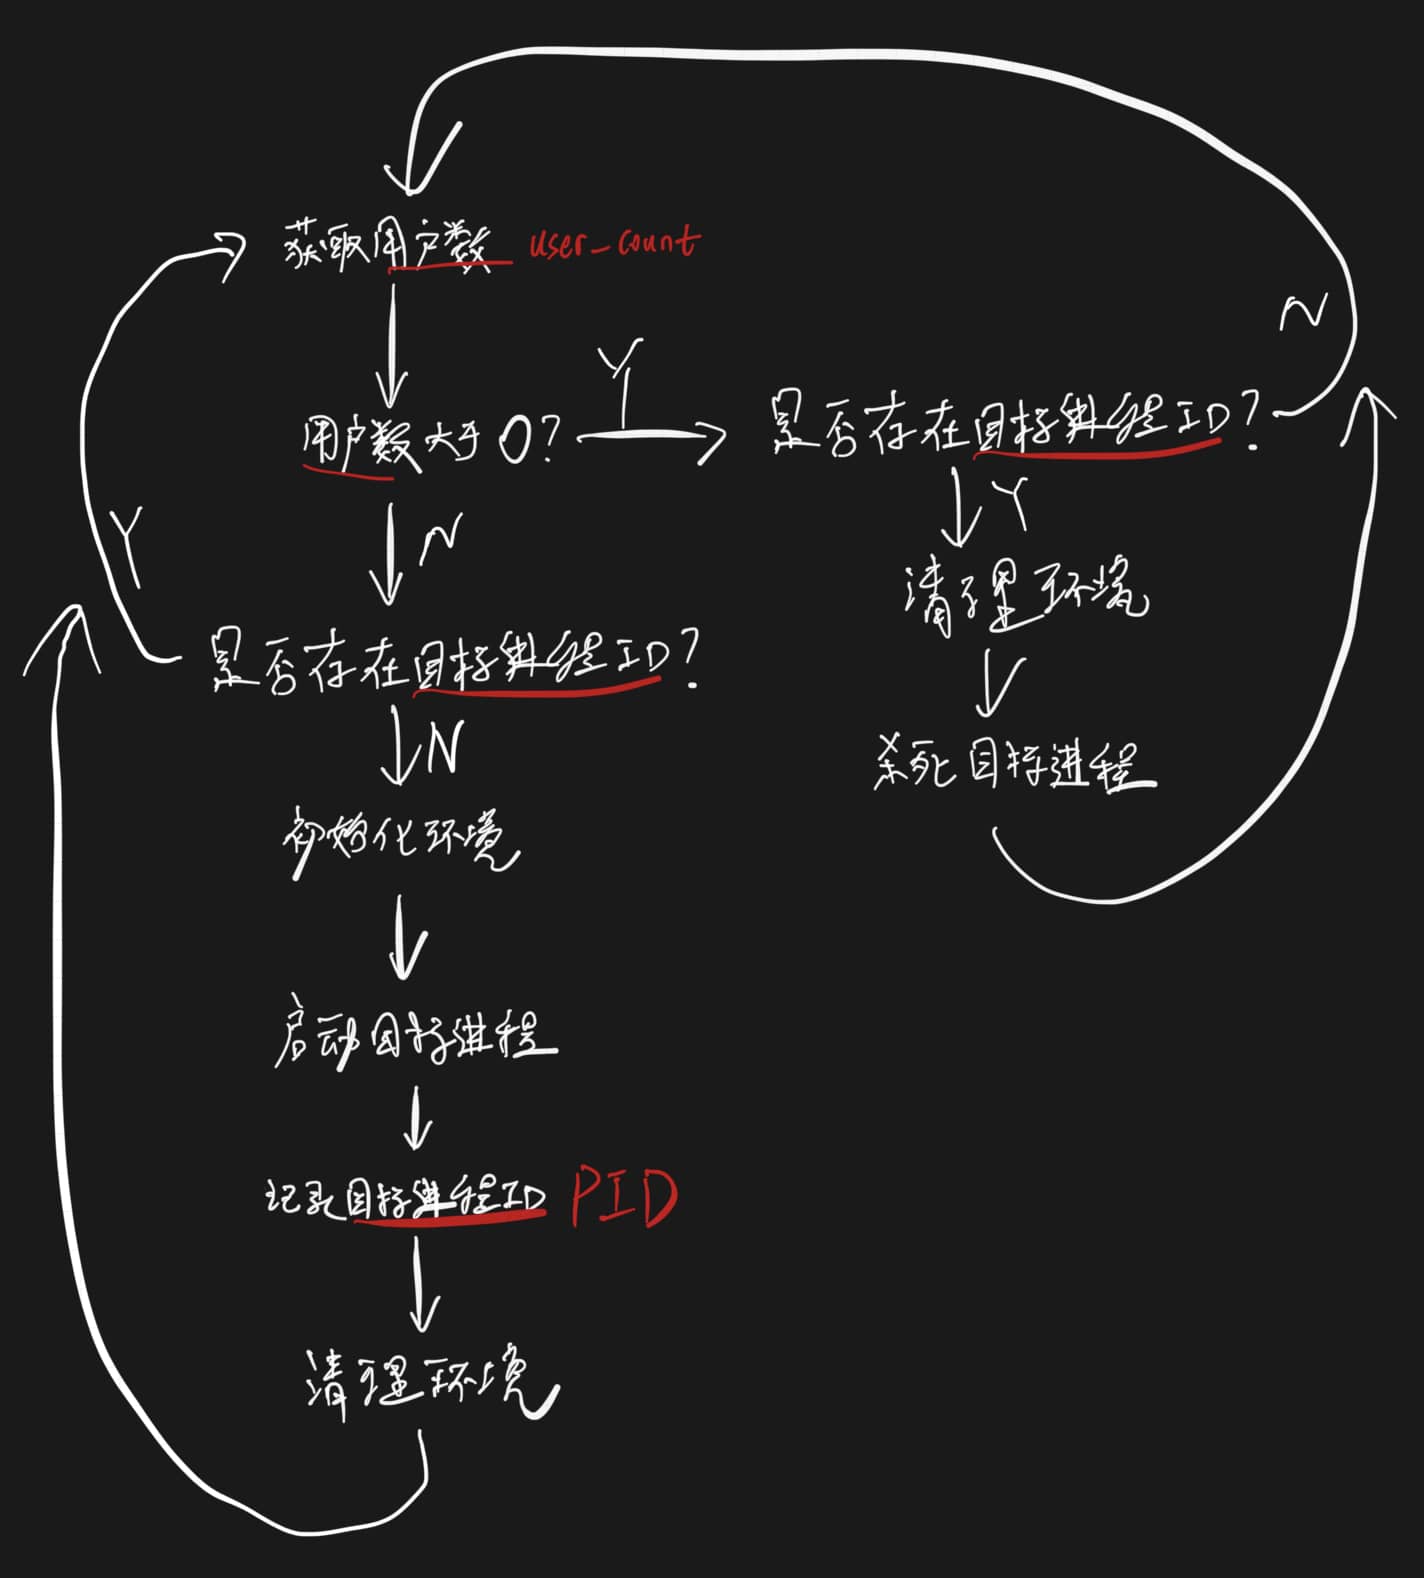 获取用户数 user_count
用户数大于0?
Y
是否存在目标进程ID?
N
Y
清理环境
杀死目标进程
N
是否存在目标进程ID?
Y
N
初始化环境
启动目标进程
记录目标进程ID PID
清理环境